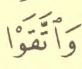 وَٱتَّقَوْا